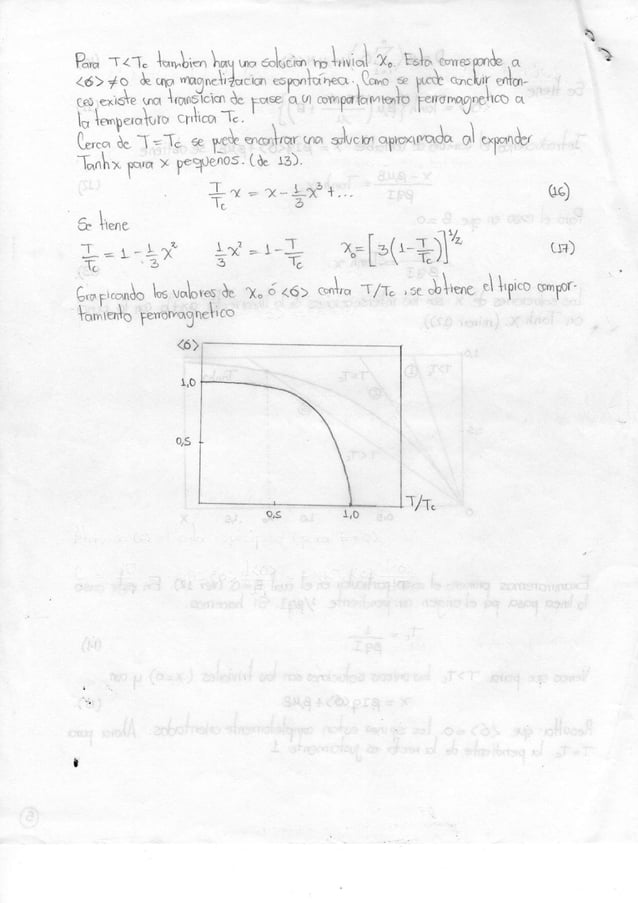 Para T<Tc tambien hay una solucion no trivial X₀. Esta corresponde a
<σ> ≠0 de una magnetizacion espontánea. Como se puede concluir enton-
ces existe una transicion de fase a un comportamiento ferromagnetico a
la temperatura critica Tc.
Cerca de T=Tc se puede encontrar una solucion aproximada al expander
Tanhx para x pequenos. (de 13).
T/Tc x = x - 1/3 x³ + ... (16)
Se tiene
T/Tc = 1 - 1/3 x² 1/3 x² = 1 - T/Tc X₀ = [3(1 - T/Tc)]^1/2 (17)
Graficando los valores de X₀ ó <σ> contra T/Tc, se obtiene el tipico compor-
tamiento ferromagnetico
<σ>
1,0
0,5
0,5 1,0 T/Tc